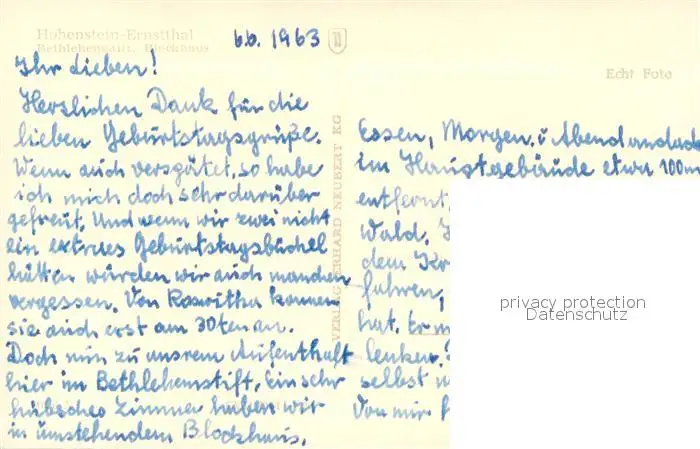 Hohenstein-Ernstthal
Bethlehemstift, Blockhaus
6.6. 1963
Echt Foto
Ihr Lieben!
Herzlichen Dank für die
lieben Geburtstagsgrüße.
Wenn auch verspätet, so habe
ich mich doch sehr darüber
gefreut. Und wenn wir zwei nicht
ein extraes Geburtstagsbüchel
hätten würden wir auch manchen
vergessen. Von Roswitha kamen
sie auch erst am 30ten an.
Doch nun zu unsrem Aufenthalt
hier im Bethlehemstift, Ein sehr
hübsches Zimmer haben wir
in umstehendem Blockhaus.
VERLAG ERHARD NEUBERT KG
Essen, Morgen. u Abendandach
im Hauptgebäude etwa 100m
entfernt
Wald.
dem
fahren,
hat. Er
lenken.
selbst
Von mir
privacy protection
Datenschutz